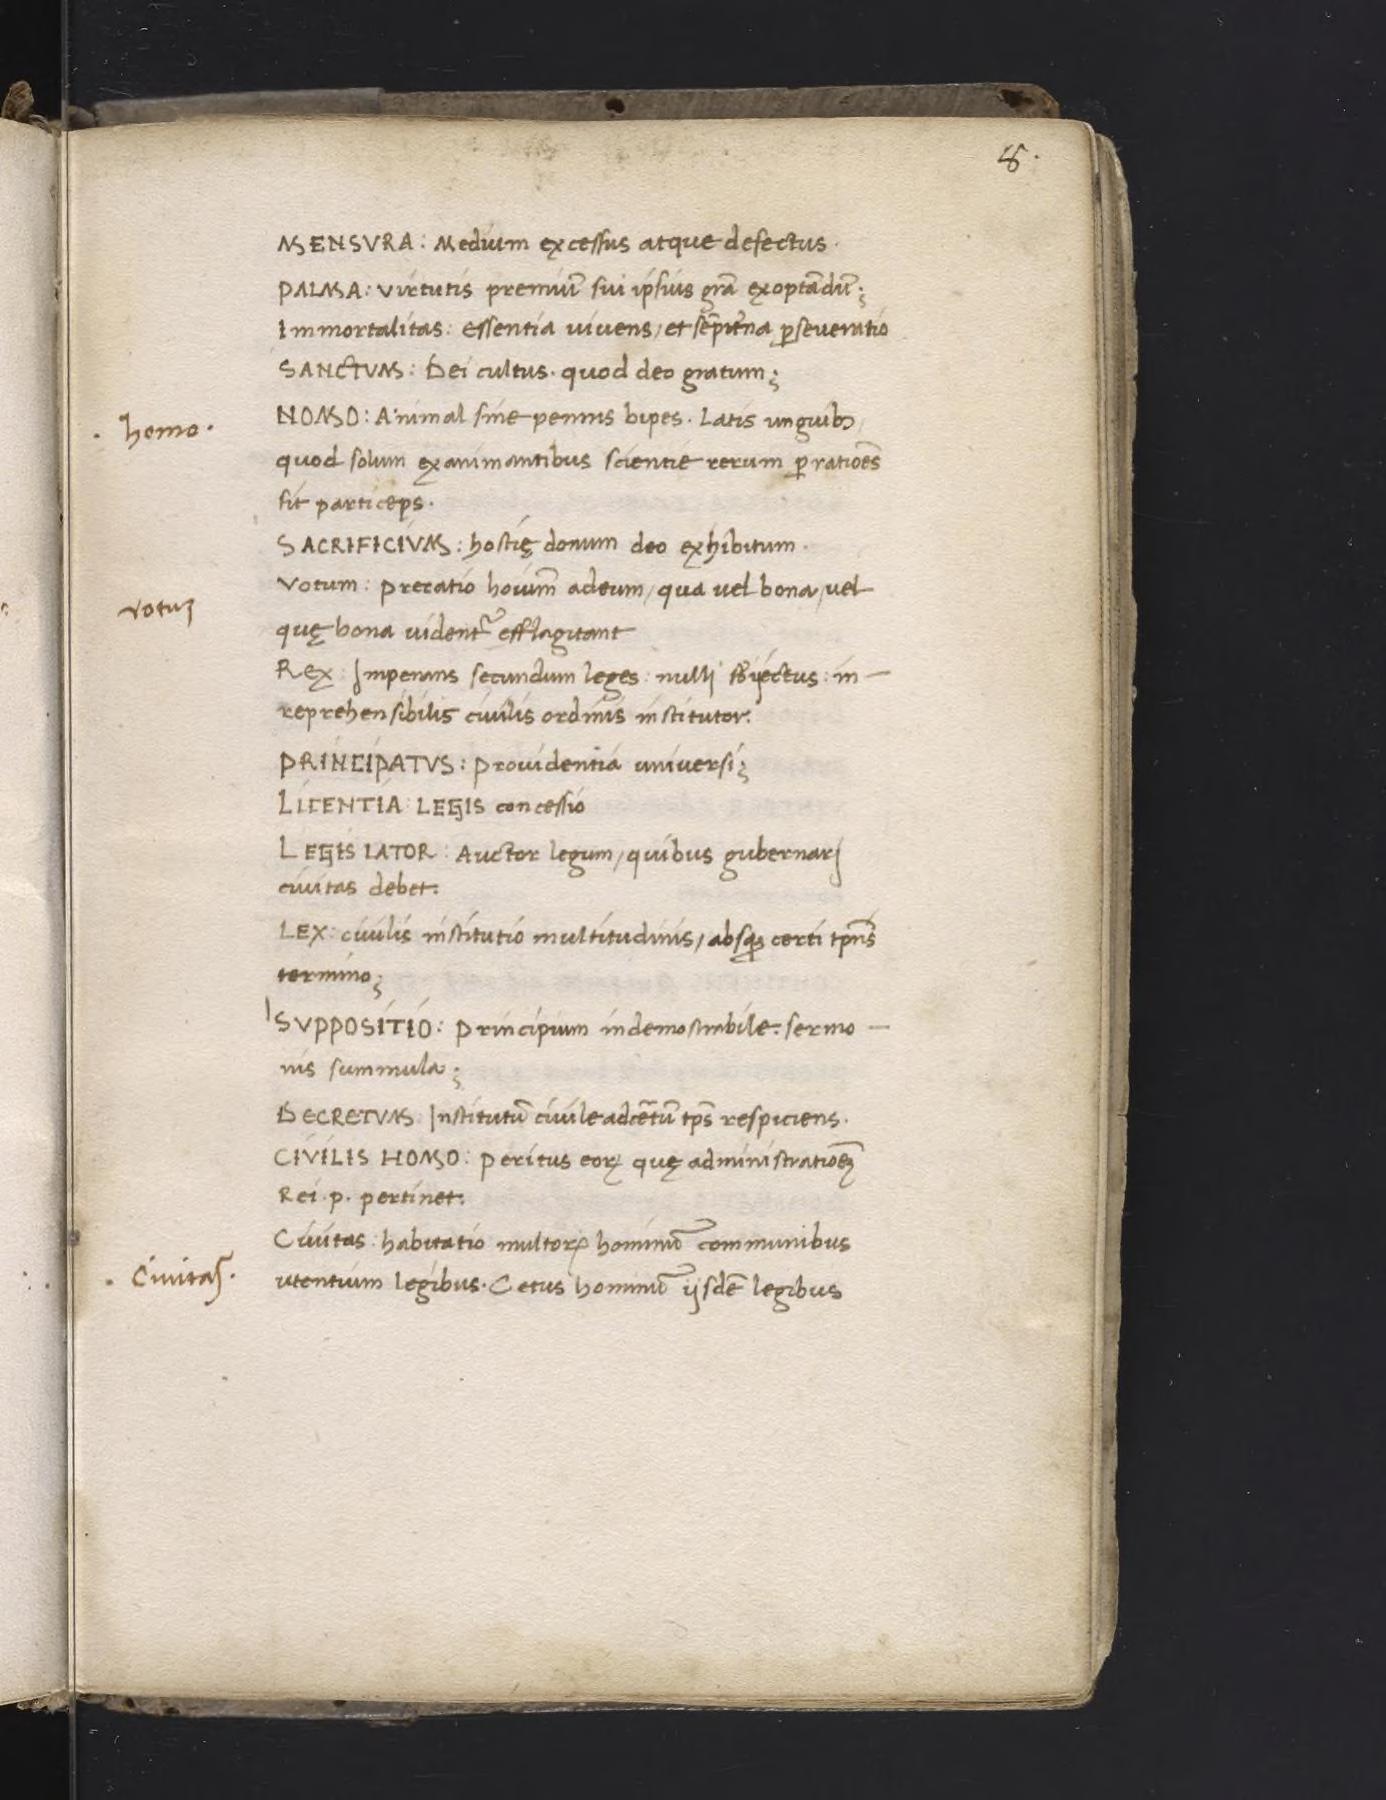 8.
MENSVRA: Medium excessus atque defectus.
PALMA: virtutis premiũ sui ipsius grã exoptãdũ;
Immortalitas: essentia uiuens, et sẽpit̃na ꝑseueratio
SANCTVM: Dei cultus. quod deo gratum;
homo.
HOMO: Animal sine pennis bipes. Latis unguibꝫ,
quod solum ex animantibus scientie rerum ꝑ ratioẽs
fit particeps.
SACRIFICIVM: hostię donum deo exhibitum.
Votum: precatio hoium̃ ad eum, qua uel bona, uel
votuꝫ
quę bona uidentᷣ efflagitant
Rex: Imperans secundum leges: nulli sƀiectus: in-
reprehensibilis ciuilis ordinis institutor.
PRINCIPATVS: Prouidentia uniuersi;
LICENTIA: LEGIS concessio
LEGISLATOR: Auctor legum, quibus gubernari
ciuitas debet.
LEX: ciuilis institutio multitudinis, absqꝫ certi tp̃ris
termino;
SVPPOSITIO: Principium indemostrabile: sermo-
nis summula;
DECRETVM Institutũ ciuile ad cẽtũ tp̃s respiciens.
CIVILIS HOMO: Peritus eoꝝ quę administratioẽꝫ
Rei. p. pertinet.
Ciuitas: habitatio multoꝝ hominũ communibus
Ciuitas.
utentium legibus. Cetus hominũ ijsdẽ legibus